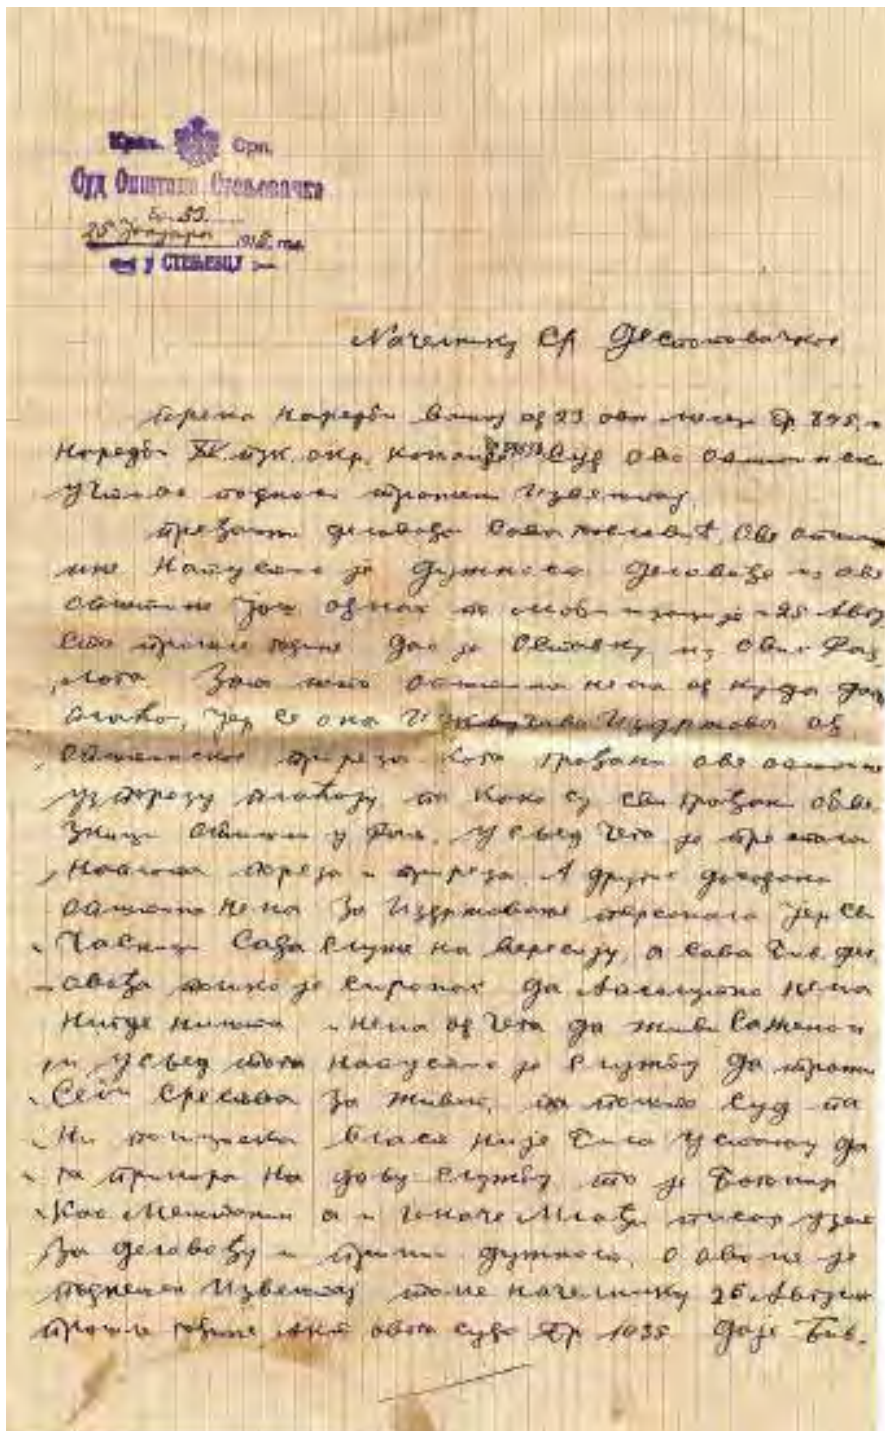 Краљ. Срп.
Суд Општине Стењевачке
Бр. 53.
25 Јануара 1915. год.
у СТЕЊЕВЦУ
Начелнику Ср Деспотовачког
Према Наредби вашој од 23 ов. месеца Бр 895, и
Наредби XV пук. окр. Суд ове
подноси Извештај
деловођа Сава ове
је Дужност деловође из ове
општине још одмах по мобилизацији 25 Авгу
ста прошле године дао је Оставку из Ових Раз
лога. Зато што општина нема од куда дати
плату, јер се она Издржава од
општинског приреза кога грађани ове општине
уз порезу плаћају, па како су сви грађани обве
зници у чега је престала
наплата пореза и приреза. А других доходака
општина нема За Издржавање персонала јер сви
Часници Сада служе на вересију, а Сава бив. дел
овођа толико је сиромах да Апсолутно нема
Нигде ништа и нема од Чега да живи Са женом
и услед тога напустио је службу да тражи
Себи Средства За живот, па пошто Суд па
Ни полицијска власт није била у стању да
га примора На даљу службу то је
Као Мештанин а и Млађи писар узет
За деловођу и прими дужност, о овоме је
поднешен Извештај томе начелнику 26 Августа
прошле године Акт овога суда Бр 1035 Да је Бив.